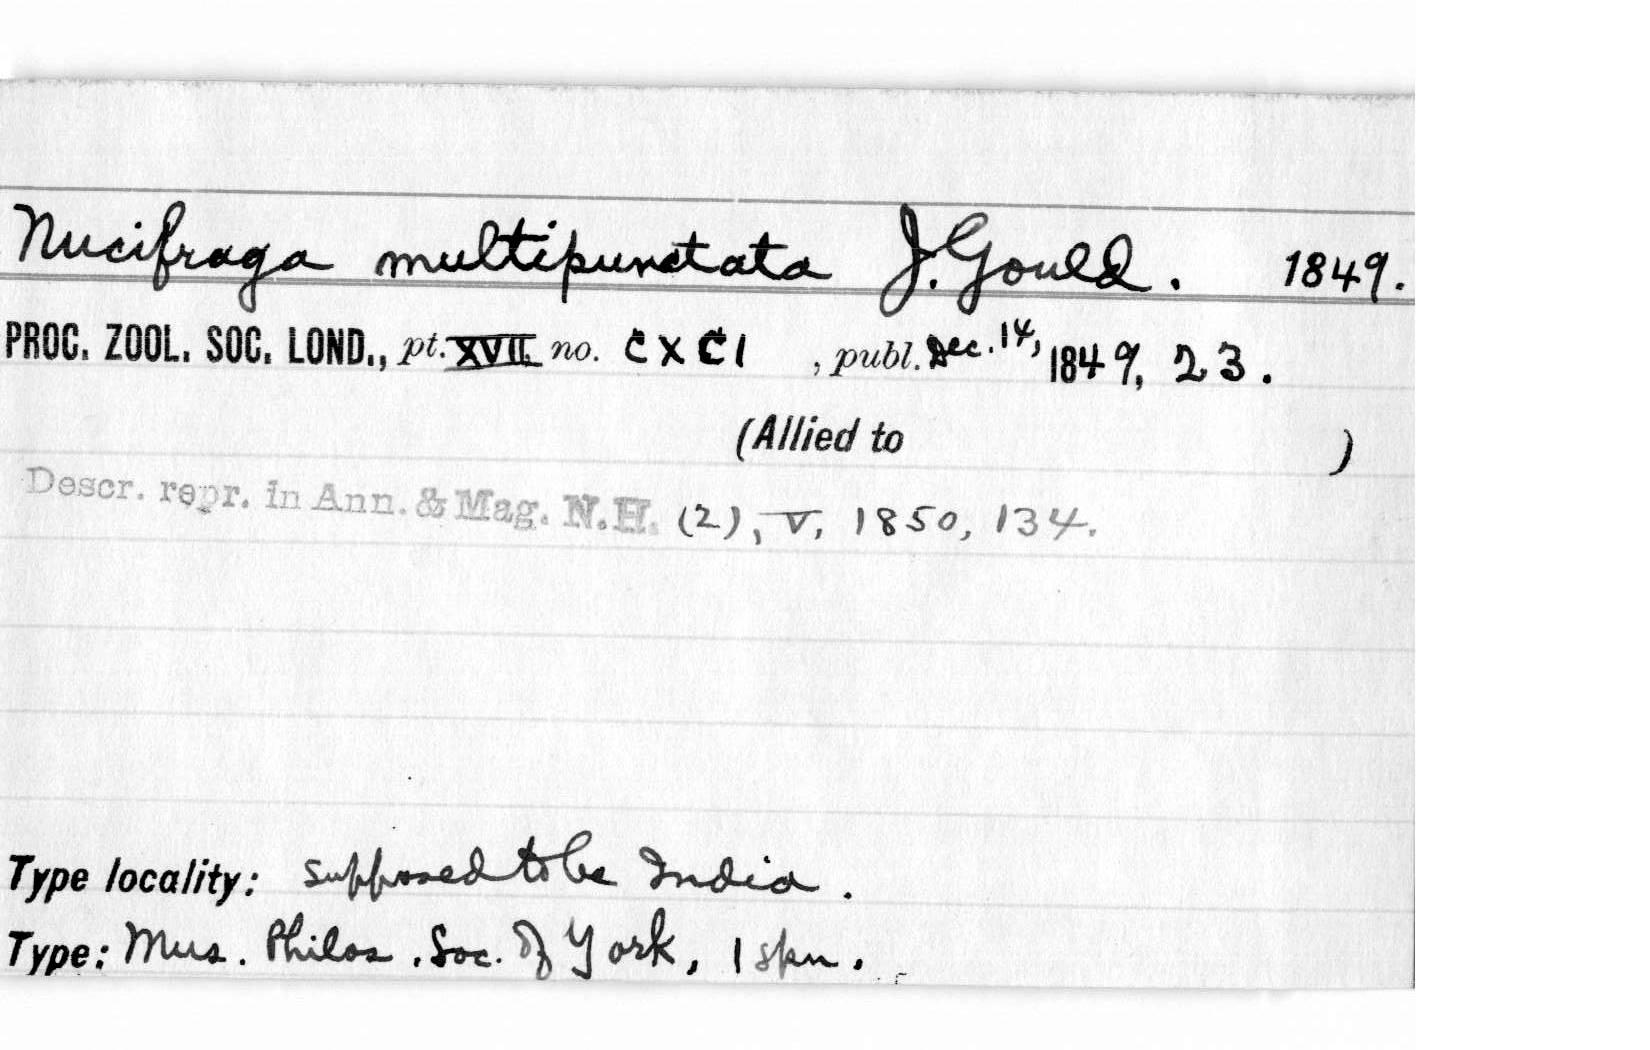 Nucifraga multipunctata J. Gould. 1849.
PROC. ZOOL. SOC. LOND., pt. XVII, no. CXCI , publ. Dec. 14, 1849, 23.
(Allied to )
Descr. repr. in Ann. & Mag. N.H. (2), V, 1850, 134.
Type locality: supposed to be India.
Type: Mus. Philos. Soc. of York, 1 spm.